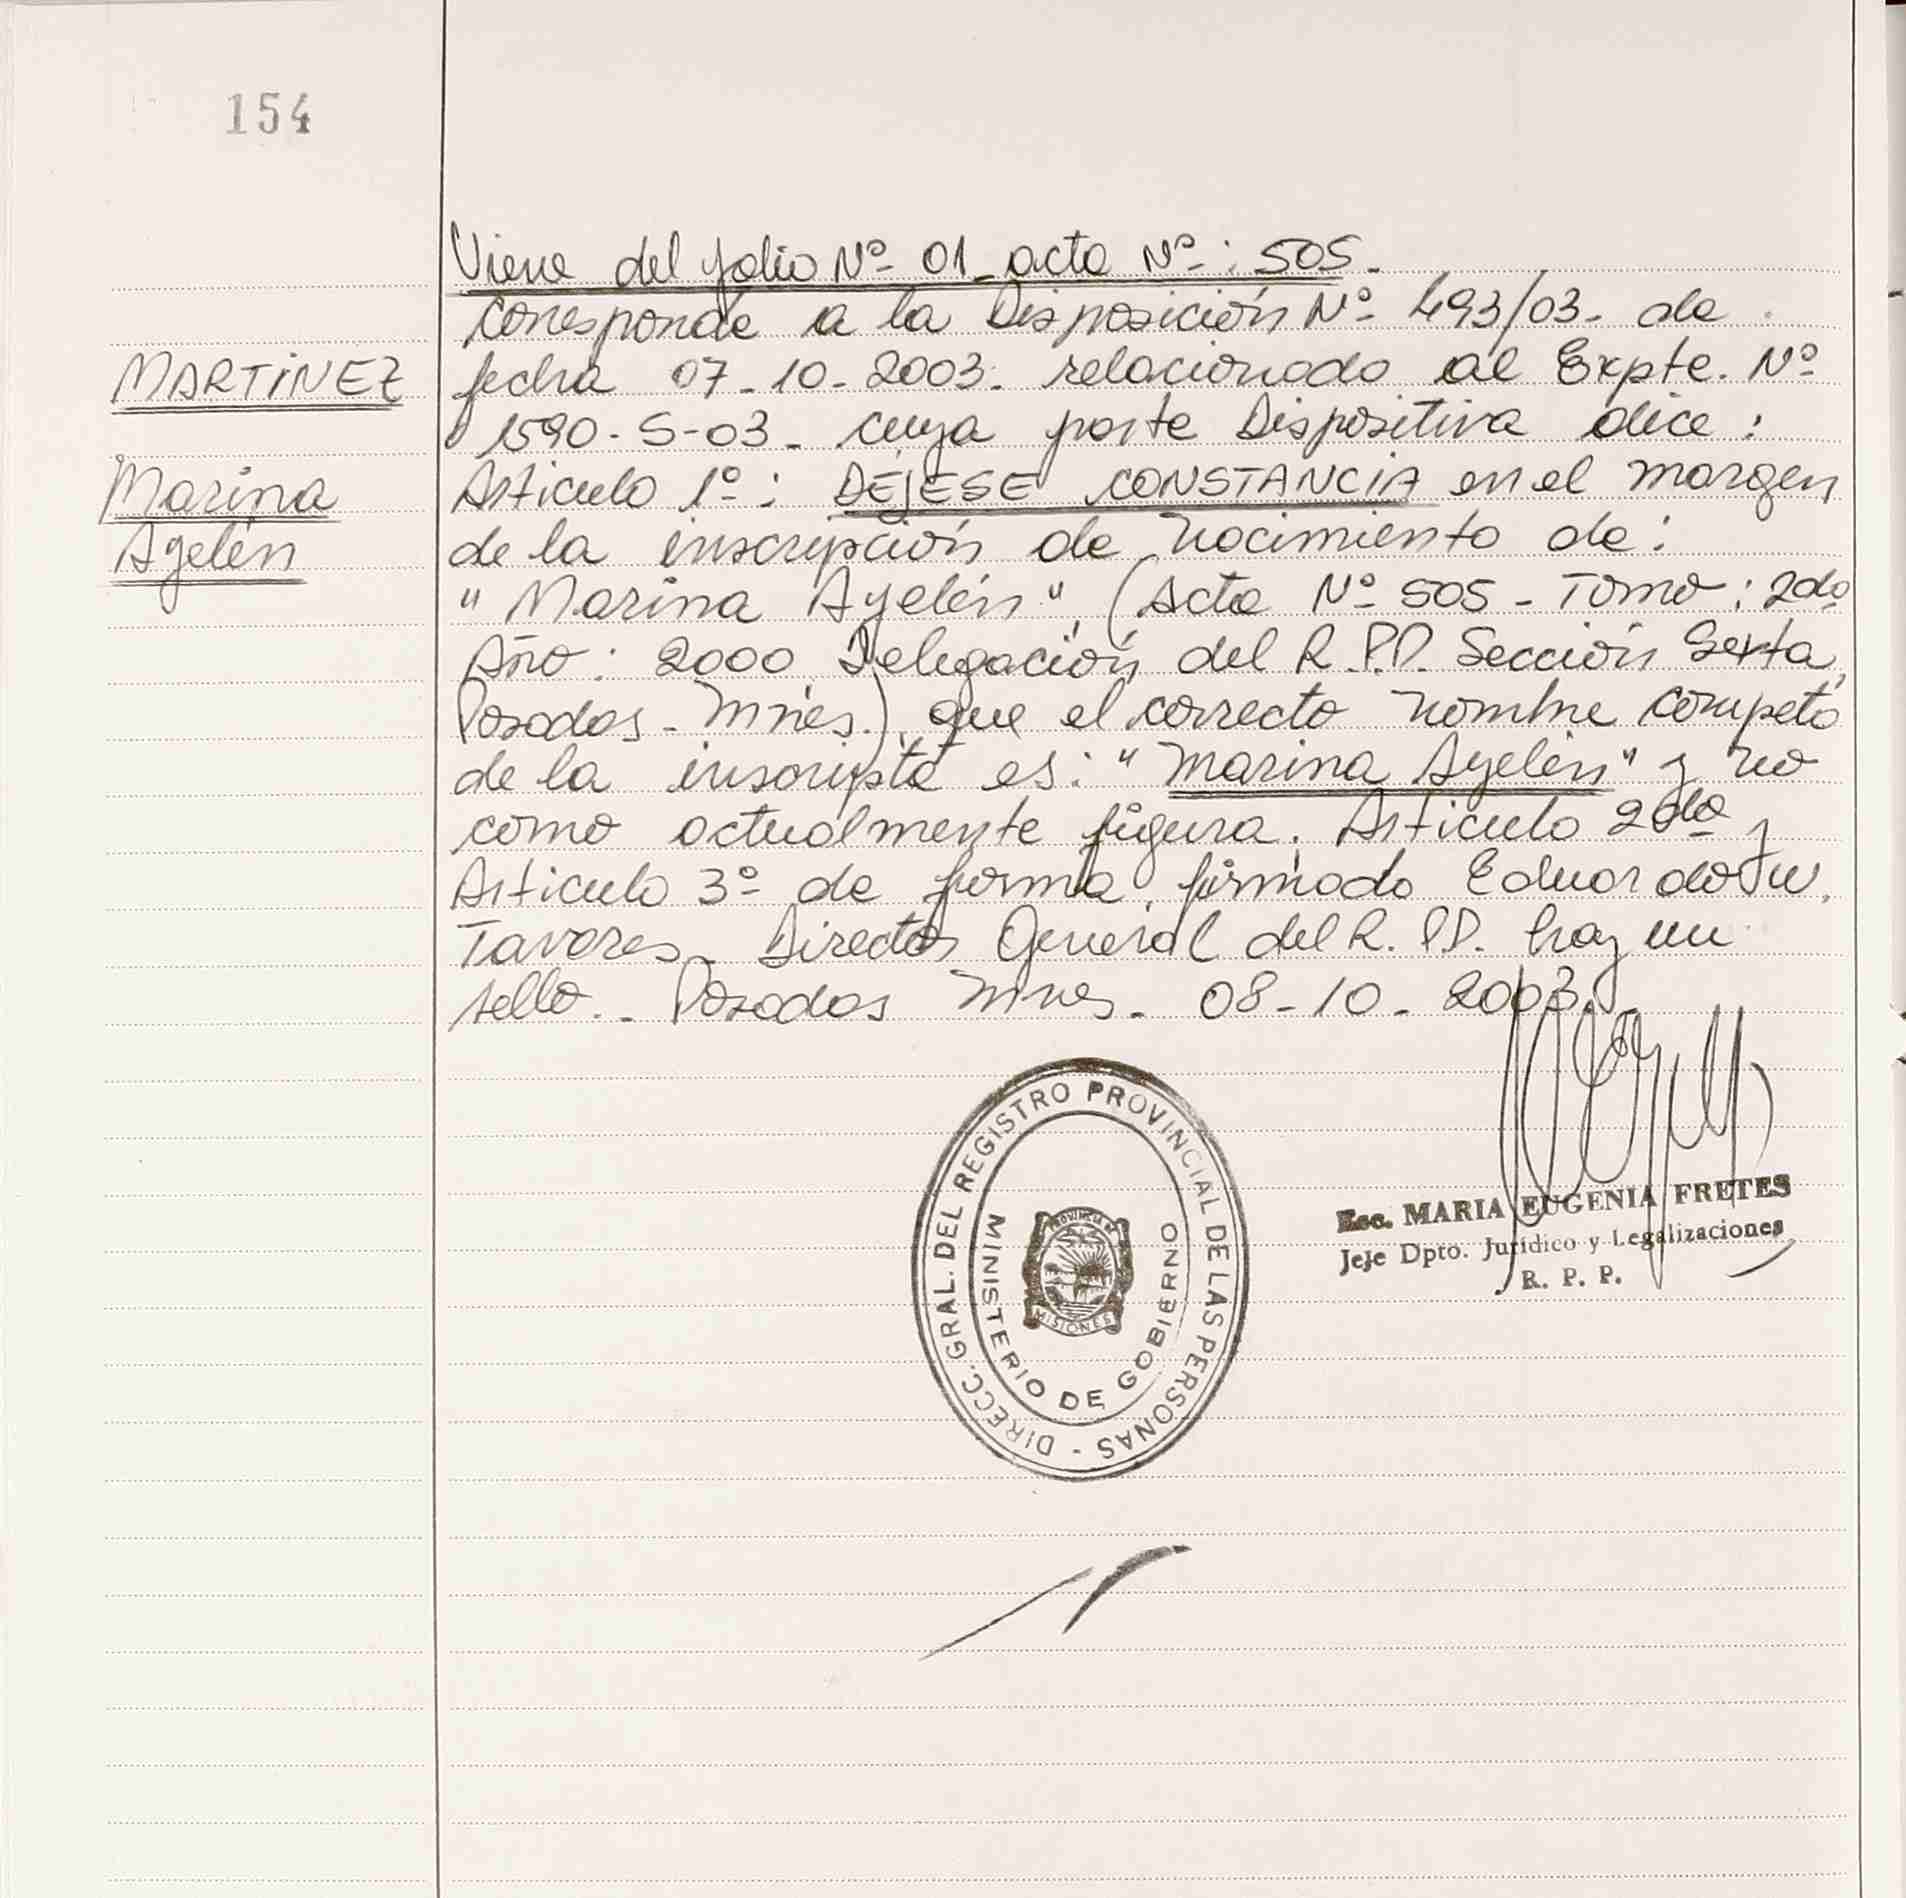 154
Viene del folio Nº 01 - acta Nº: 505 -
Corresponde a la Disposición Nº 493/03 - de
MARTINEZ
fecha 07-10-2003. relacionado al Expte. Nº
1590-S-03 - cuya parte Dispositiva dice:
Marina
Articulo 1º: DÉJESE CONSTANCIA en el margen
Ayelén
de la inscripción de nacimiento de:
"Marina Ayelén", (Acta Nº 505 - Tomo: 2do
Año: 2000, Delegación del R.P.P. Sección Sexta,
Posadas - Mnes.), que el correcto nombre competo
de la inscripta es: "Marina Ayelén" y no
como actualmente figura. Articulo 2do y
Articulo 3º de forma, firmado Eduardo W.
Tavares - Director General del R.P.P. hay un
sello. - Posadas Mnes. 08-10-2003.
DIRECC. GRAL. DEL REGISTRO PROVINCIAL DE LAS PERSONAS -
MINISTERIO DE GOBIERNO
PROVINCIA DE
MISIONES
Esc. MARIA EUGENIA FRETES
Jefe Dpto. Jurídico y Legalizaciones
R. P. P.